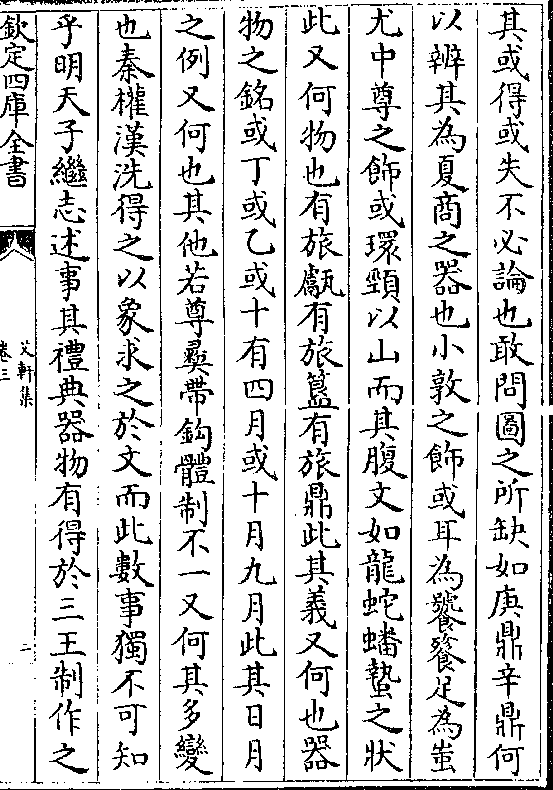 其或得或失不必論也敢問圖之所缺如庚鼎辛鼎何
以辨其為夏商之器也小敦之飾或耳為饕餮足為蚩
尤中尊之飾或環頸以山而其腹文如龍蛇蟠蟄之狀
此又何物也有旅甗有旅簠有旅鼎此其義又何也器
物之銘或丁或乙或十有四月或十月九月此其日月
之例又何也其他若尊彞帶鈎體制不一又何其多變
也秦權漢洗得之以象求之於文而此數事獨不可知
乎明天子繼志述事其禮典器物有得於三王制作之
欽定四庫全書
艾軒集
卷三
二